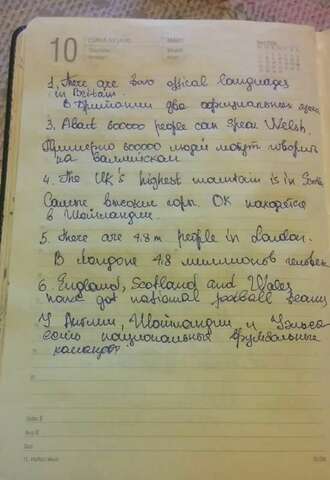 10
1. There are two offical languages
in Britain.
В Британии два официальных языка
3. About 500000 people can speak Welsh.
Примерно 500000 людей могут говорить
на валлийском
4. The UK's highest mountain is in
Самые высокие горы. ОК находятся
в Шотландии.
5. There are 4.8 m people in London.
В Лондоне 4.8 миллионов человек
6. England, Scotland and Wales
have got national football teams
У Англии, Шотландии и Уэльса
есть национальные футбольные
команды.